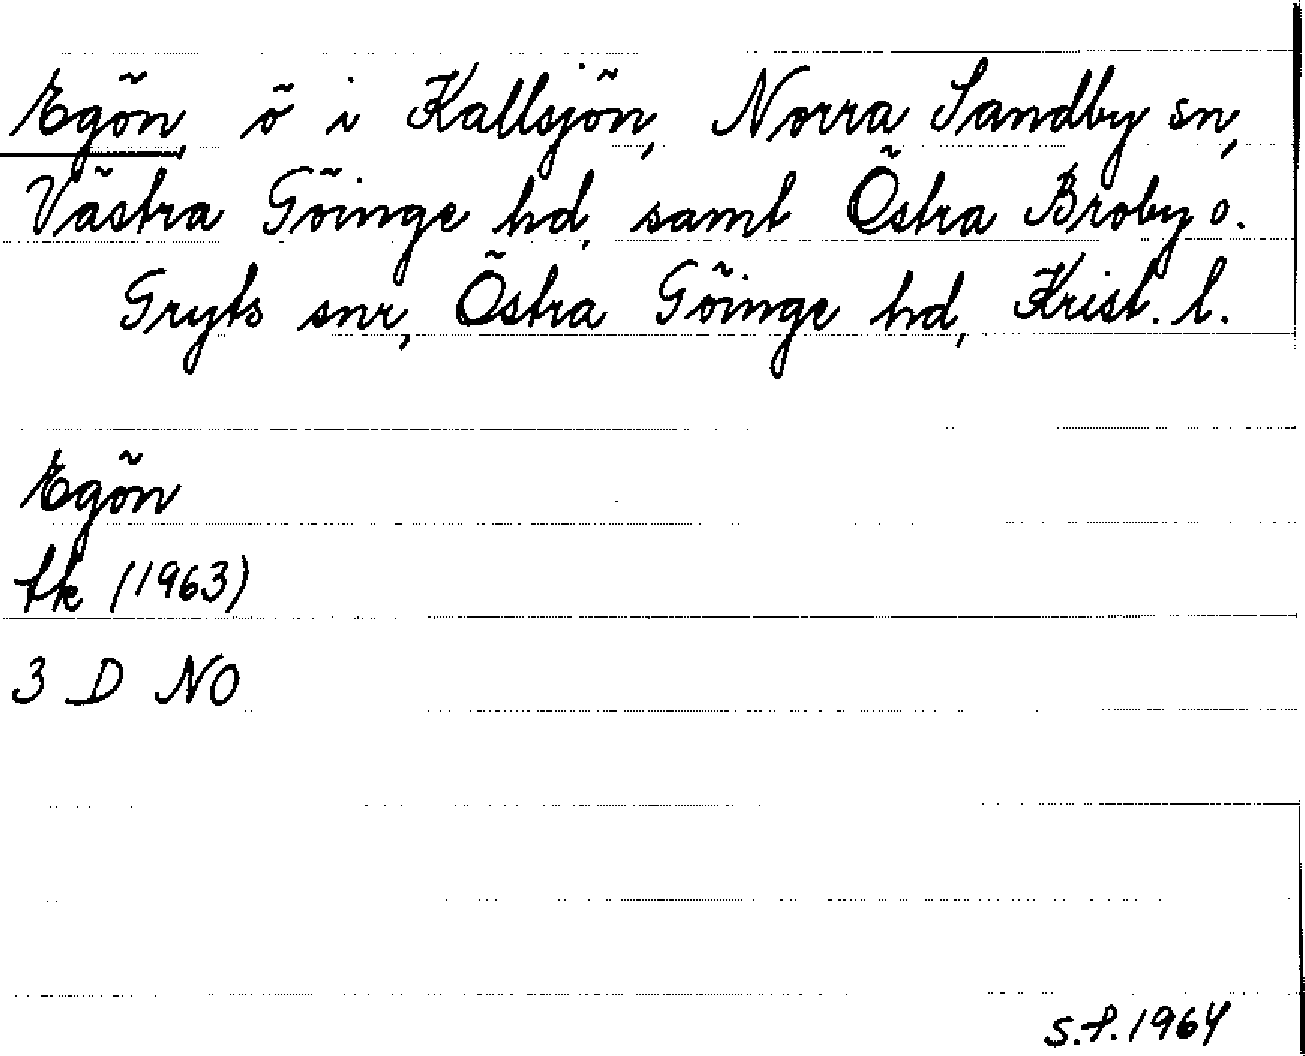 Egön, ö i Kallsjön, Norra Sandby sn,
Västra Göinge hd, samt Östra Broby o.
Gryts snr, Östra Göinge hd, Krist. l.
Egön
fk (1963)
3 D NO
S.f. 1964